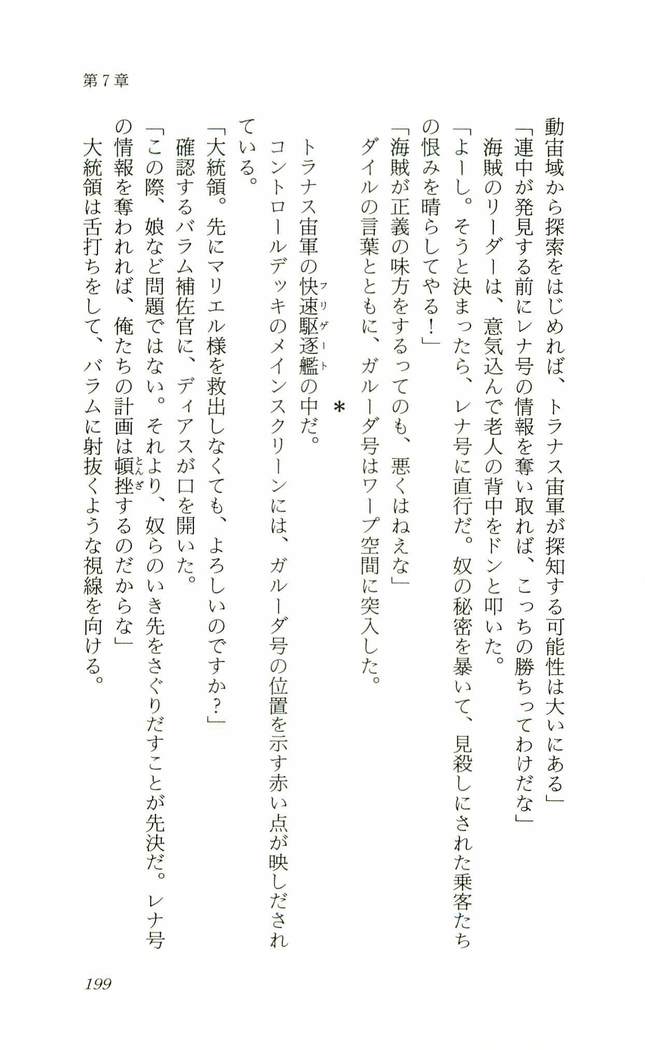 第7章
動宙域から探索をはじめれば、トラナス宙軍が探知する可能性は大いにある」
「連中が発見する前にレナ号の情報を奪い取れば、こっちの勝ちってわけだな」
海賊のリーダーは、意気込んで老人の背中をドンと叩いた。
「よーし。そうと決まったら、レナ号に直行だ。奴の秘密を暴いて、見殺しにされた乗客たち
の恨みを晴らしてやる！」
「海賊が正義の味方をするってのも、悪くはねえな」
ダイルの言葉とともに、ガルーダ号はワープ空間に突入した。
＊
トラナス宙軍の快速駆逐艦フリゲートの中だ。
コントロールデッキのメインスクリーンには、ガルーダ号の位置を示す赤い点が映しだされ
ている。
「大統領。先にマリエル様を救出しなくても、よろしいのですか？」
確認するバラム補佐官に、ディアスが口を開いた。
「この際、娘など問題ではない。それより、奴らのいき先をさぐりだすことが先決だ。レナ号
の情報を奪われれば、俺たちの計画は頓挫とんざするのだからな」
大統領は舌打ちをして、バラムに射抜くような視線を向ける。
199